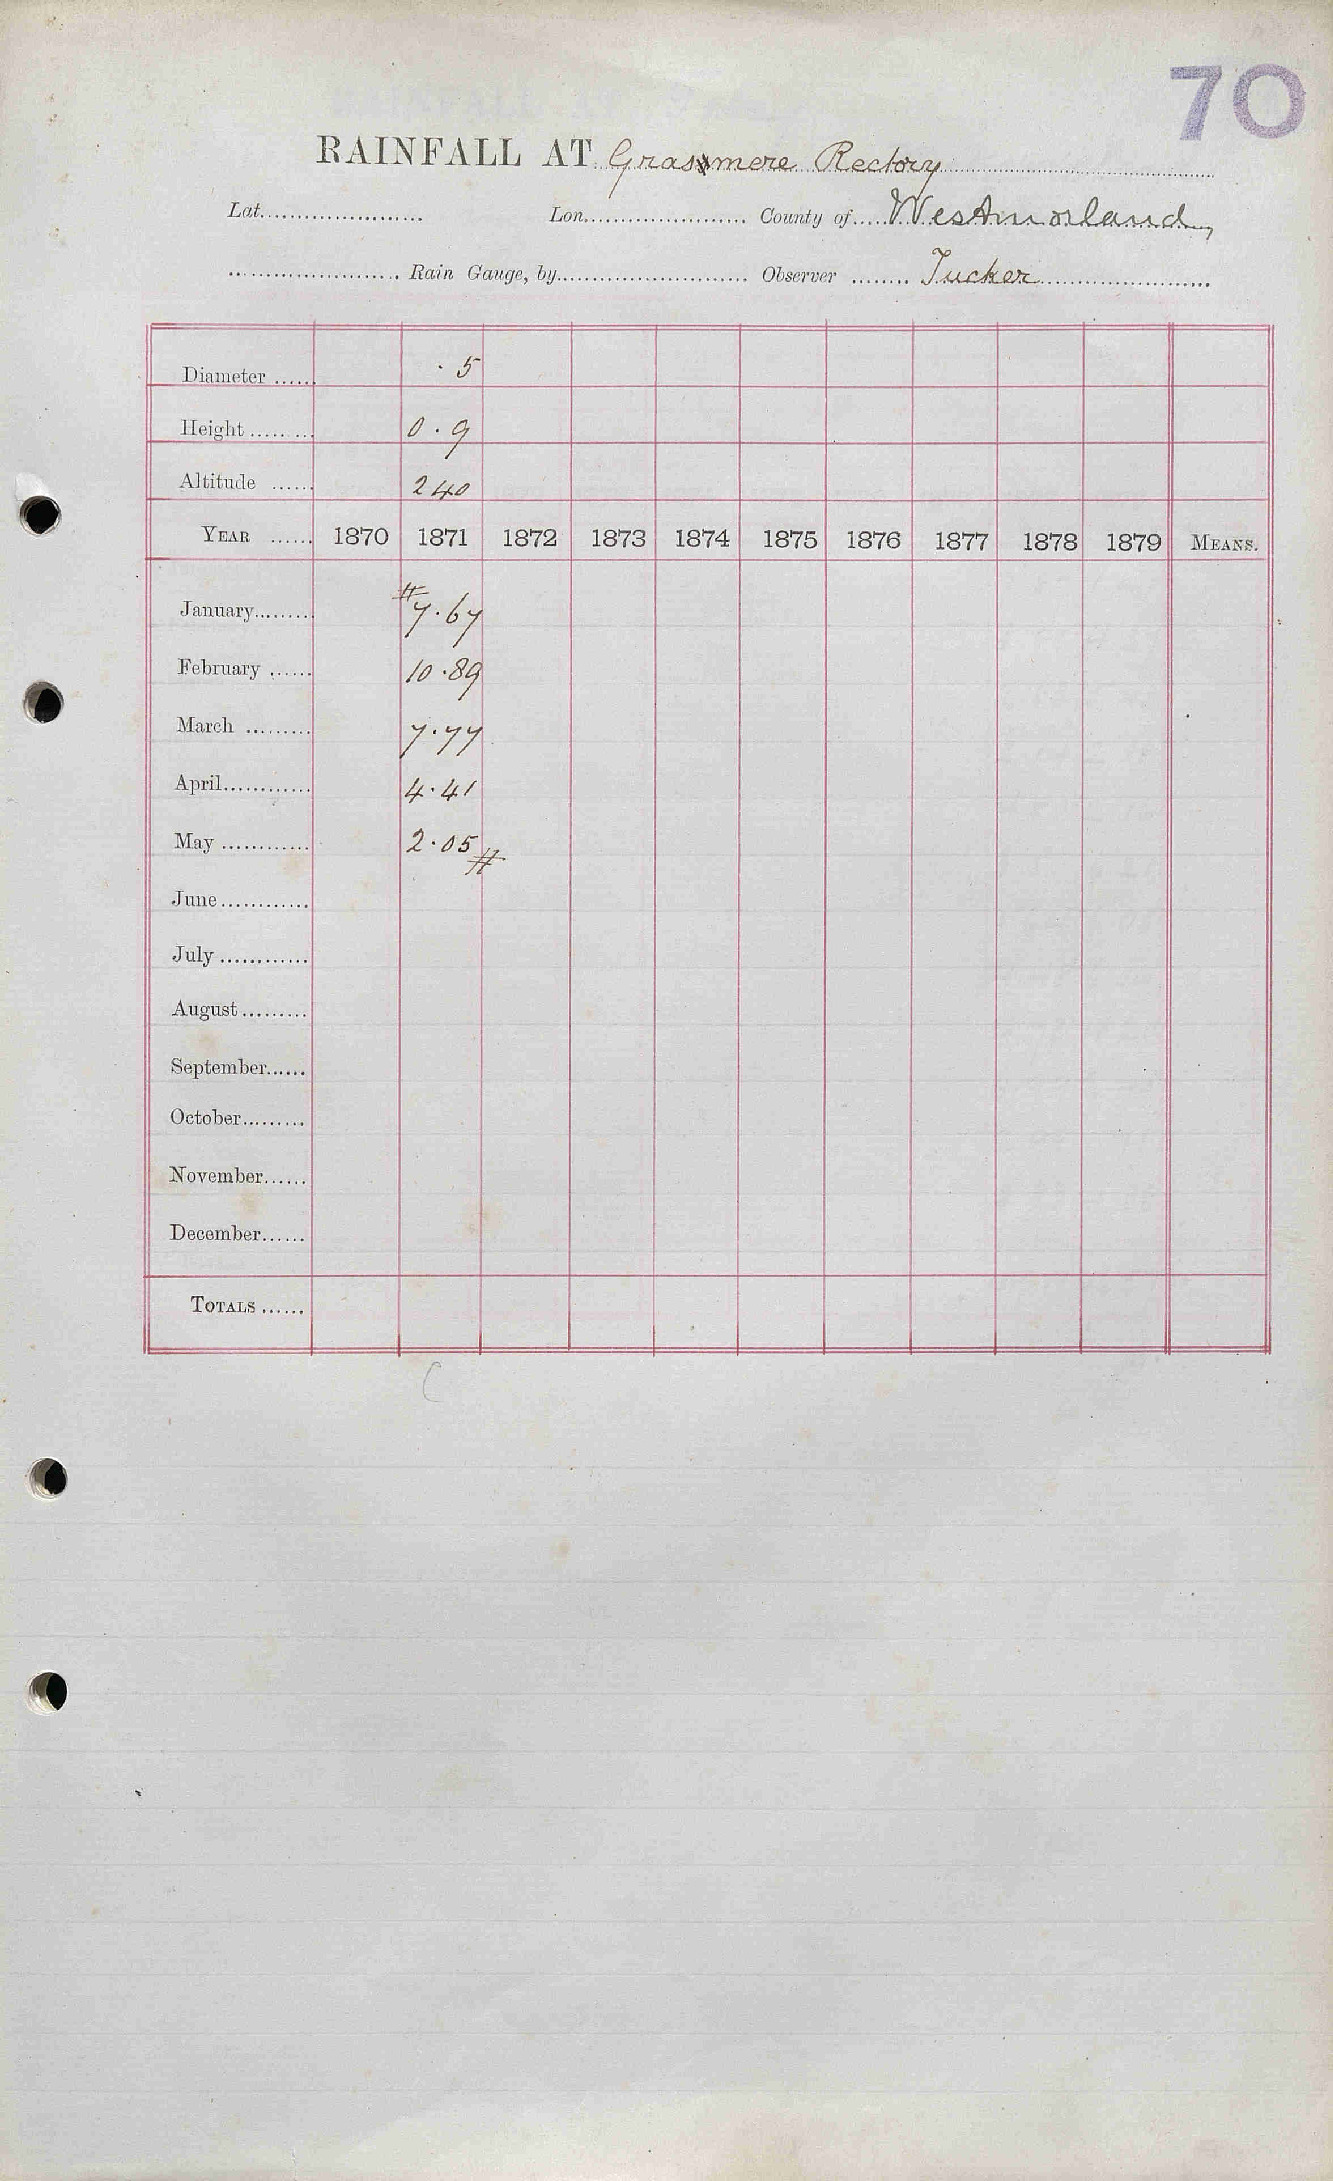 70
RAINFALL AT Grasmere Rectory
Lat. Lon. County of Westmorland
Rain Gauge, by Observer Tucker
Diameter · 5
Height 0 · 9
Altitude 240
YEAR 1870 1871 1872 1873 1874 1875 1876 1877 1878 1879 MEANS.
January # 7·67
February 10·89
March 7·77
April 4·41
May 2·05 #
June
July
August
September
October
November
December
TOTALS